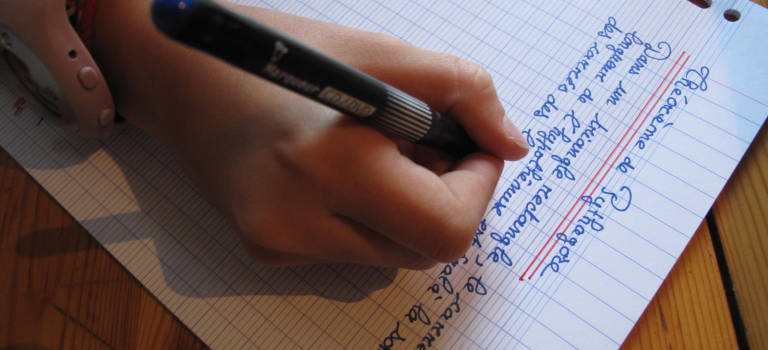 Théorème de Pythagore
Dans un triangle rectangle, le carré
longueur de l'hypothénuse est égal à la
des carrés des